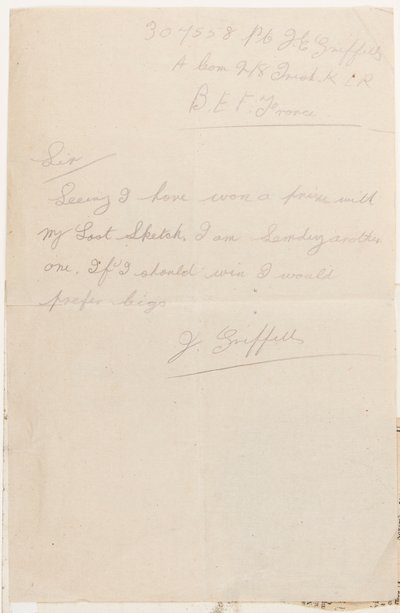 307558 Pte J E Griffiths
A Com 2/8 Irish K L R
B. E. F. France
Sir
Seeing I have won a prize with
my Last Sketch, I am Sending another
one. If I should win I would
prefer Cigs
J. Griffiths